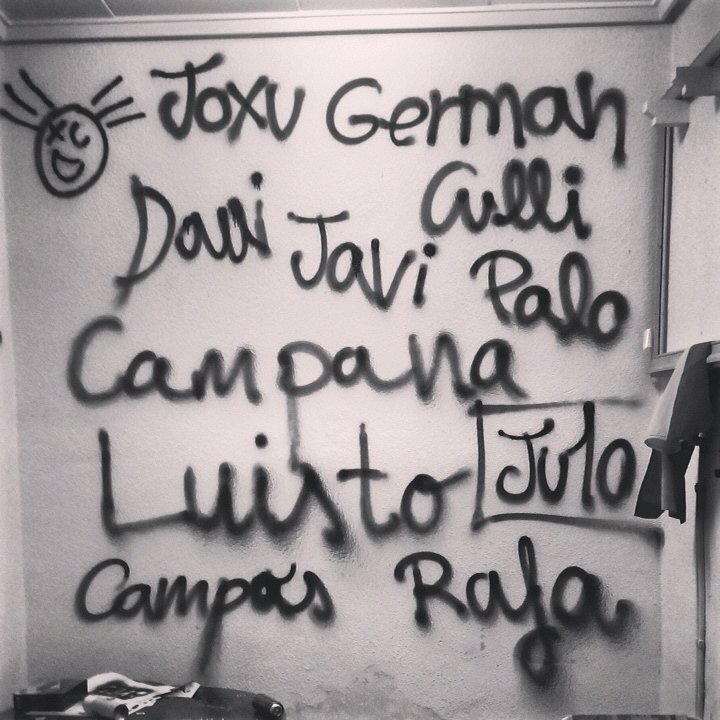 Joxu German
Culli
Davi Javi Palo
Campana
Luisto Julo
Campos Rafa